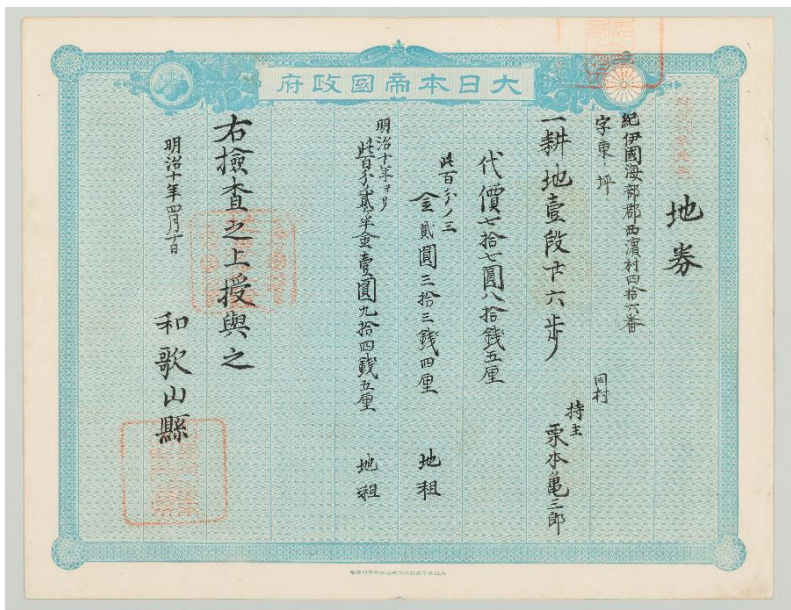 大日本帝國政府
地券
紀伊國海部郡西濱村四拾六番
字東ノ坪
一耕地壹段廿六歩
同村
持主 栗本亀三郎
代價七拾七圓八拾錢五厘
此百分ノ三
金貳圓三拾三錢四厘 地租
明治十年ヨリ
此百分ノ貳半金壹圓九拾四錢五厘 地租
右檢査之上授與之
明治十年四月十日
和歌山縣